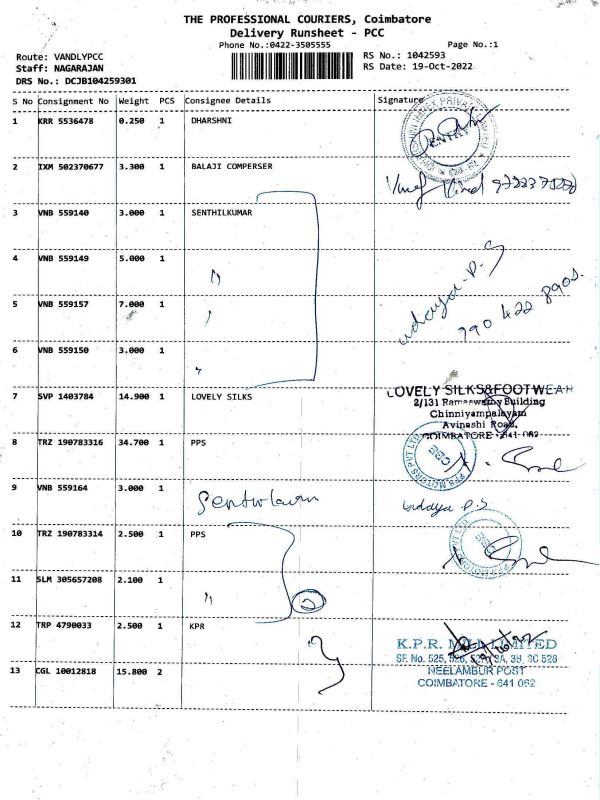 THE PROFESSIONAL COURIERS, Coimbatore
Delivery Runsheet - PCC
Phone No.:0422-3505555 Page No.:1
Route: VANDLYPCC RS No.: 1042593
Staff: NAGARAJAN RS Date: 19-Oct-2022
DRS No.: DCJB104259301
S No Consignment No Weight PCS Consignee Details Signature
1 KRR 5536478 0.250 1 DHARSHNI
2 IXM 502370677 3.300 1 BALAJI COMPERSER
3 VNB 559140 3.000 1 SENTHILKUMAR
4 VNB 559149 5.000 1 "
udaya. P.S
5 VNB 559157 7.000 1
790 422 8901
6 VNB 559150 3.000 1
7 SVP 1403784 14.900 1 LOVELY SILKS LOVELY SILKS&FOOTWEAR
2/131 Ramaswamy Building
Chinniyampalayam
Avinashi Road,
COIMBATORE - 641 062
8 TRZ 190783316 34.700 1 PPS
CBE
9 VNB 559164 3.000 1 Senthilkumar udaya P.S
10 TRZ 190783314 2.500 1 PPS
11 SLM 305657208 2.100 1 " 2
12 TRP 4790033 2.500 1 KPR
K.P.R. MILL LIMITED
SF. No. 525, 526, 527, 3A, 3B, SC 528
13 CGL 10012818 15.800 2 NEELAMBUR POST
COIMBATORE - 641 062